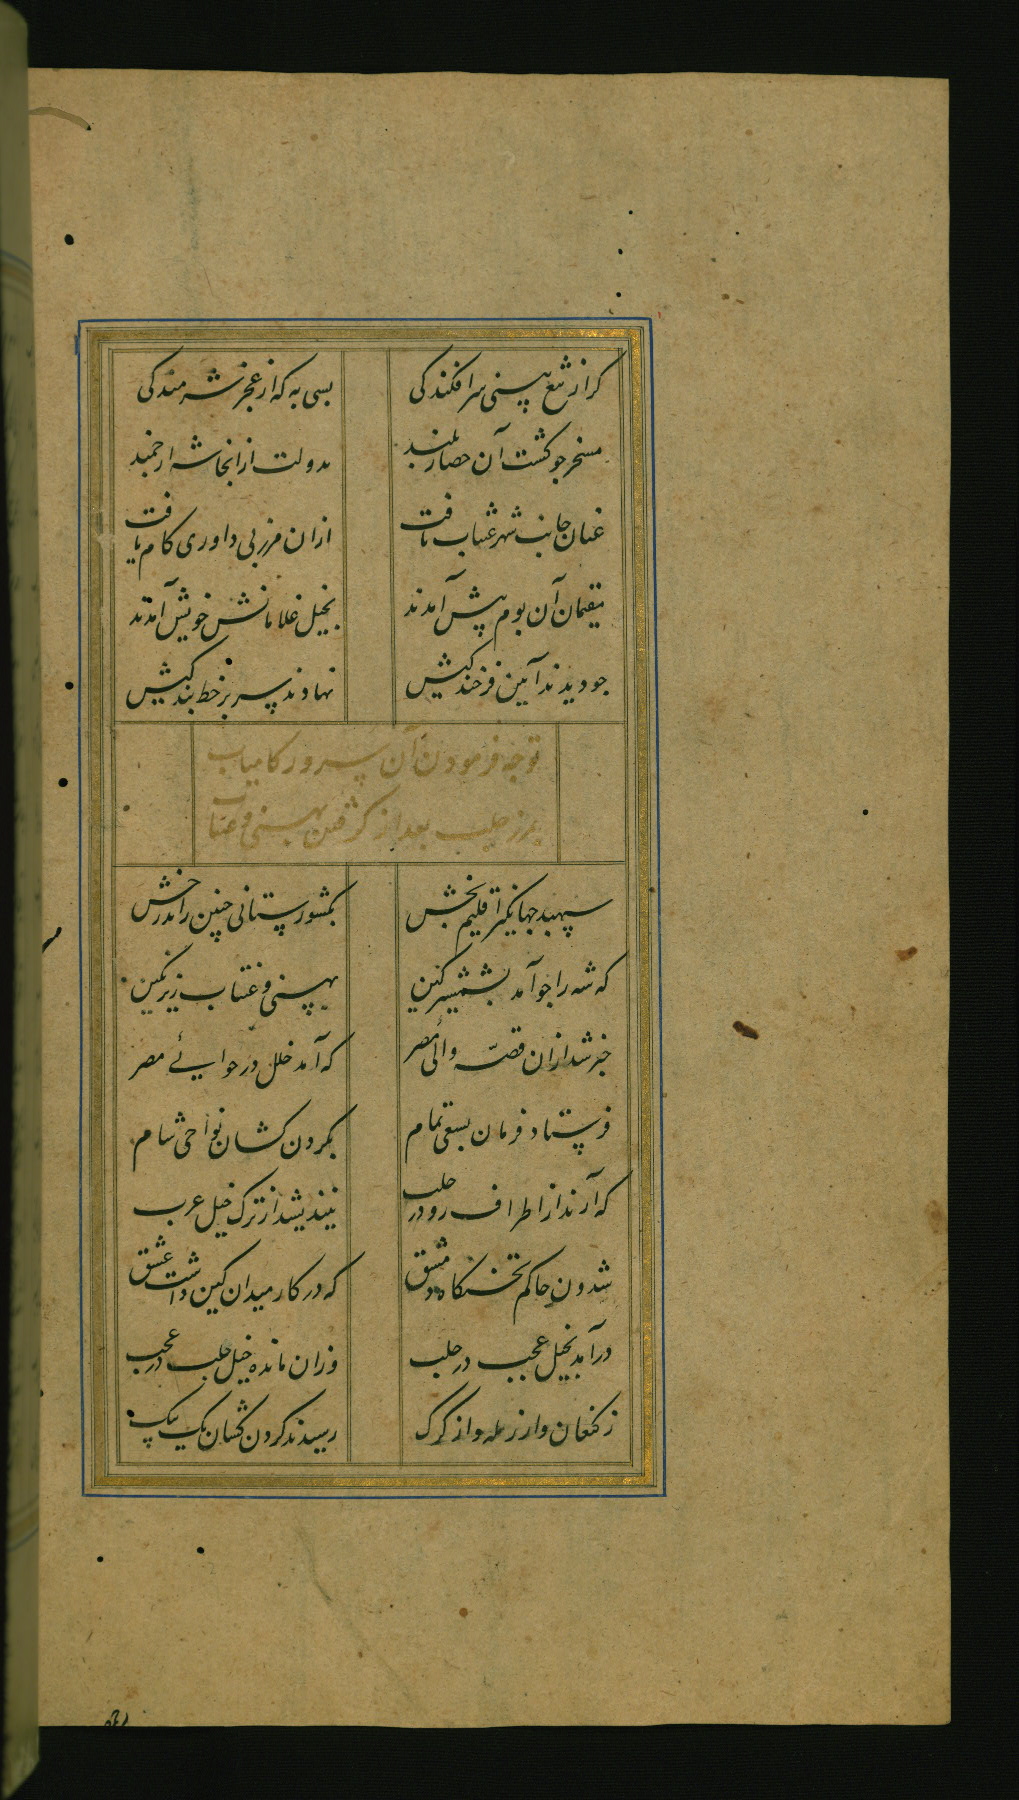 کر از تیغ بینی سرافکندکی بسی به که از عجز شرمندکی
مسخر جو کشت آن حصار بلند بدولت از انجا شه ارجمند
عنان جانب شهر عنتاب تافت ازان مرز بی داوری کام یافت
مقیمان آن بوم پیش آمدند بخیل غلامانش خویش آمدند
جو دیدند آیین فرخندکیش نهادند سر بر خط بندکیش
توجه فرمودن آن سرور کامیاب
بمرز حلب بعد از کرفتن بهسنی و عنتاب
سپهبد جهانکیر اقلیم بخش بکشورستانی چنین راند رخش
که شه را جو آمد بشمشیر کین بهسنی و عنتاب زیر نکین
خبر شد ازان قصه والی مصر که آمد خلل در حوالیٔ مصر
فرستاد فرمان بسعی تمام بکردن کشان نواحی شام
که آرند از اطراف رو در حلب نیندیشد از ترک خیل عرب
شدون حاکم تختکاه دمشق که در کار میدان کین داشت عشق
درآمد بخیل عجب در حلب وزان مانده خیل حلب در عجب
ز کنعان و از رمله و از کرک رسیدند کردن کشان یک بیک